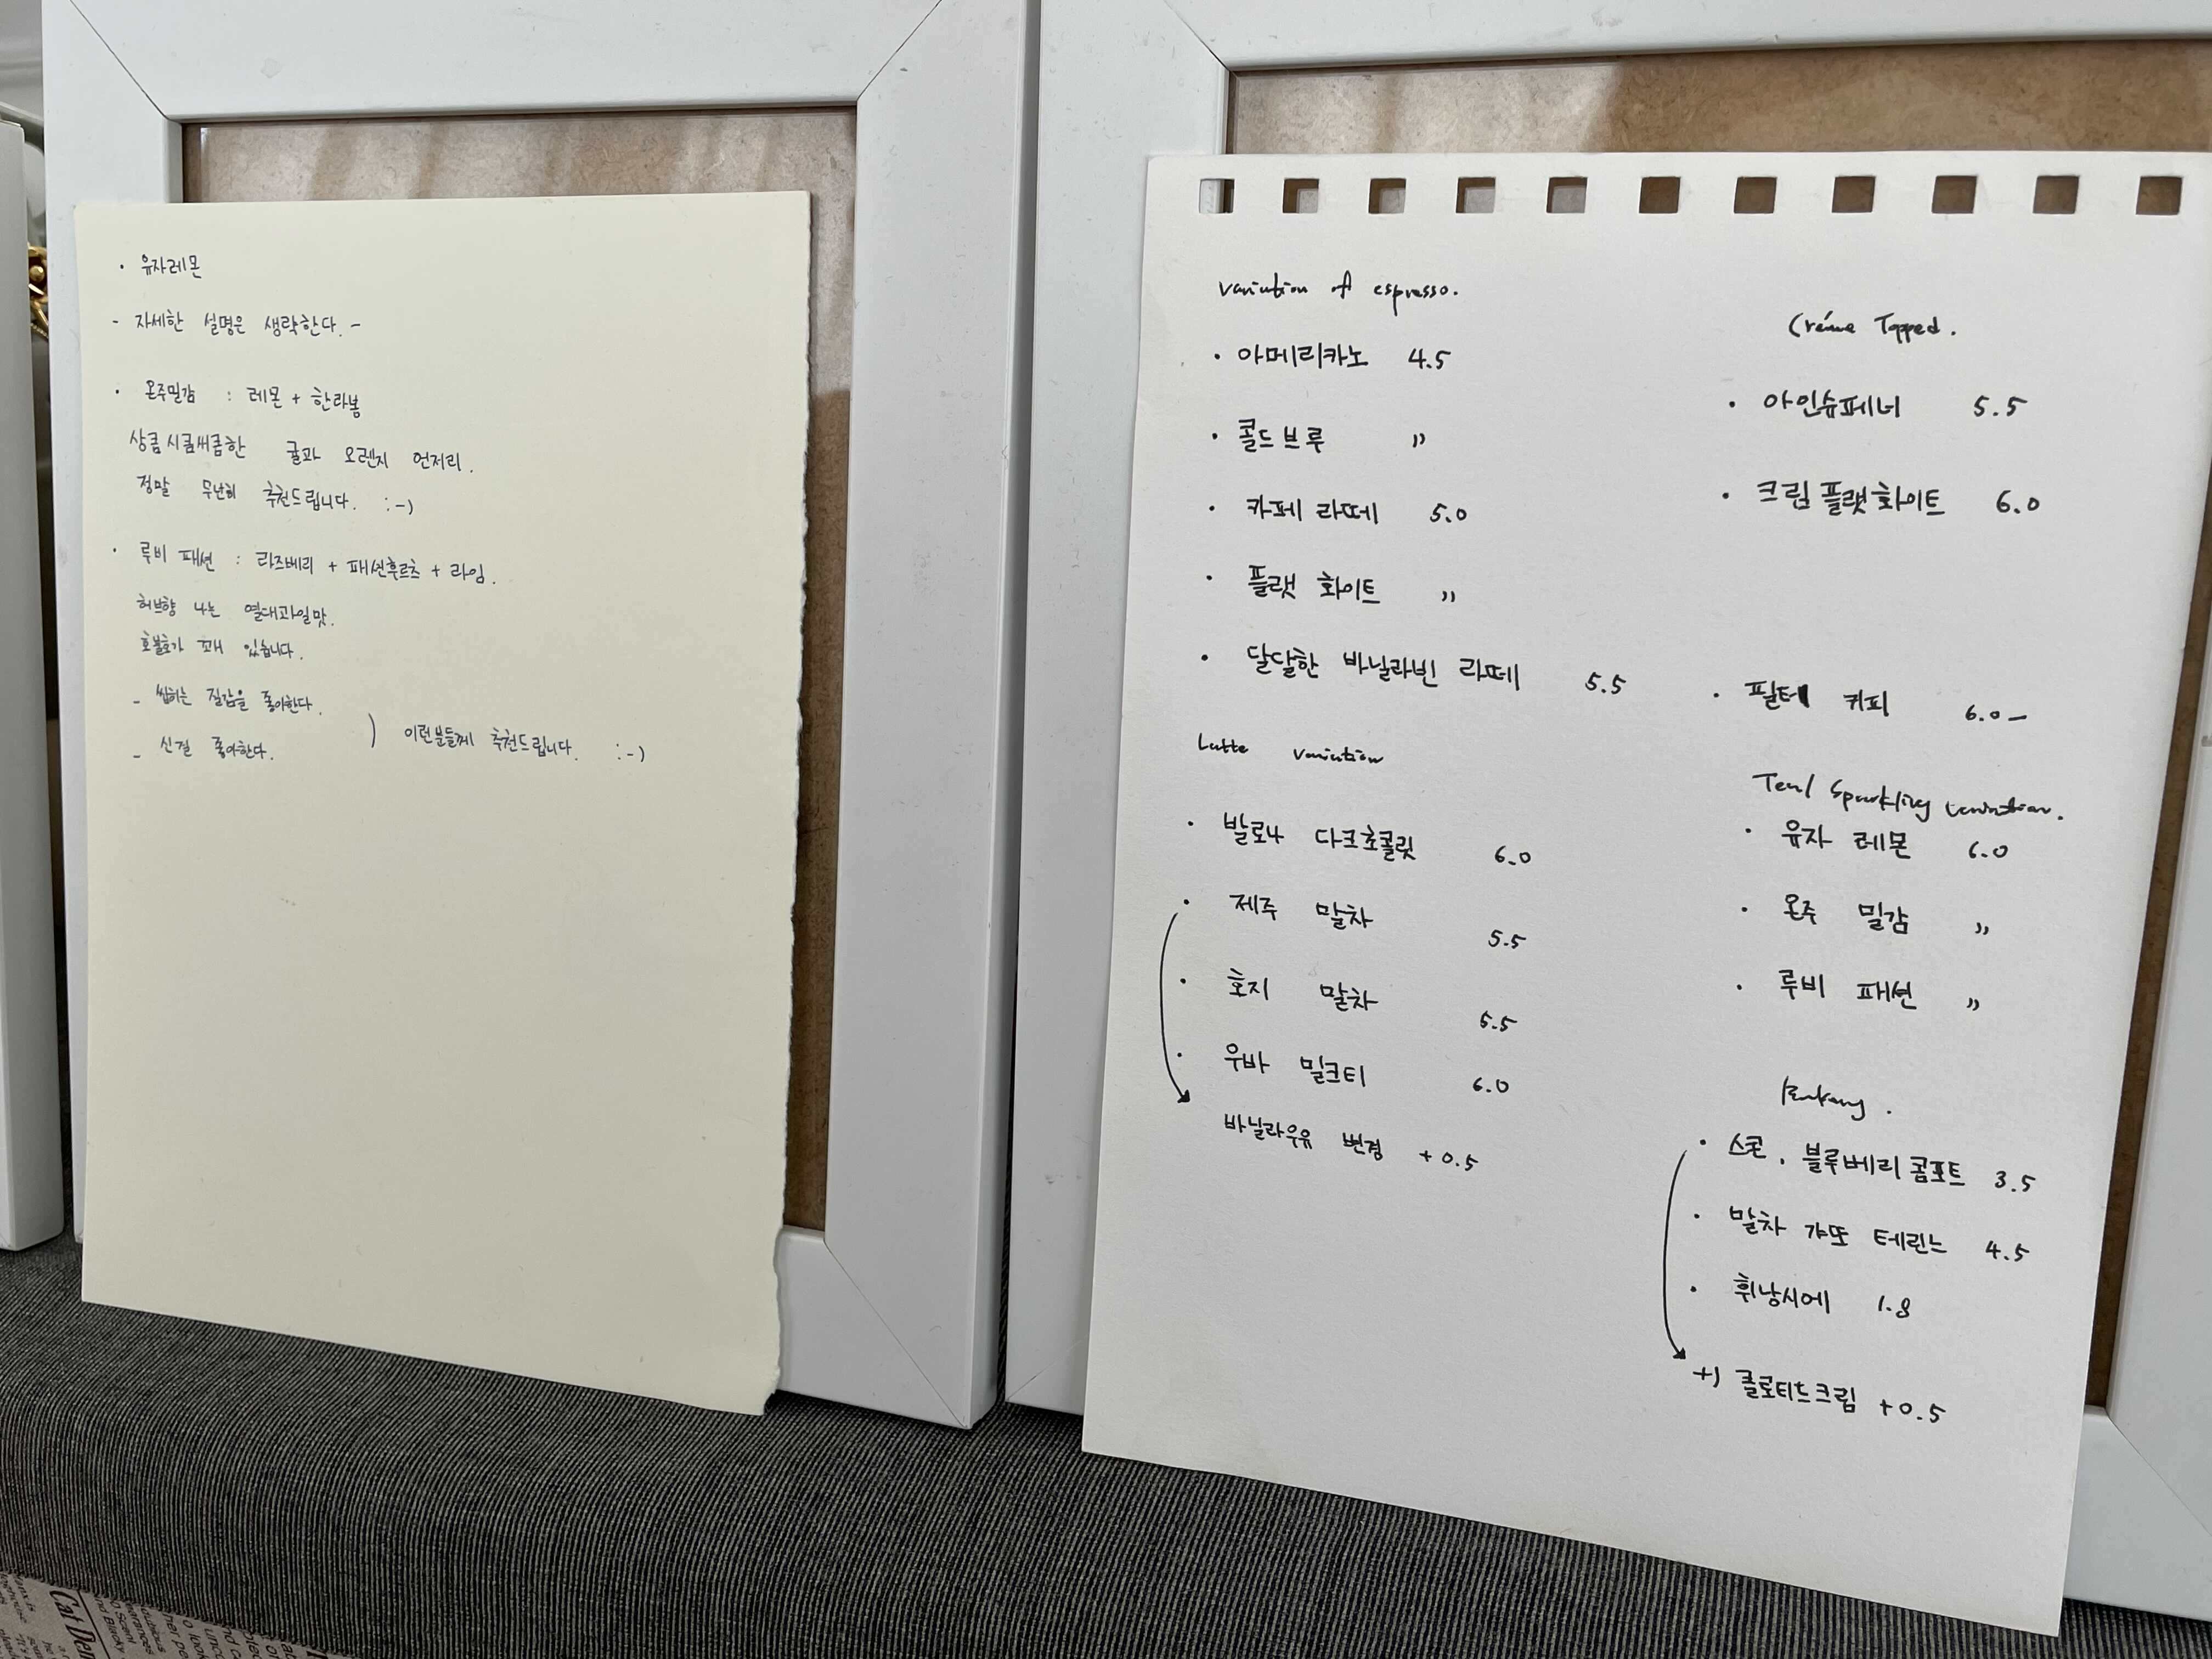 · 유자레몬
- 자세한 설명은 생략한다. -
· 온주밀감 : 레몬 + 한라봉
상큼시큼새콤한 귤과 오렌지 언저리.
정말 무난히 추천드립니다. :-)
· 루비 패션 : 라즈베리 + 패션후르츠 + 라임.
허브향 나는 열대과일맛.
호불호가 꽤 있습니다.
- 씹히는 질감을 좋아한다.
- 신걸 좋아한다.
) 이런분들께 추천드립니다. :-)
variation of espresso.
· 아메리카노 4.5
· 콜드브루 〃
· 카페 라떼 5.0
· 플랫 화이트 〃
· 달달한 바닐라빈 라떼 5.5
Latte variation
· 발로나 다크초콜릿 6.0
· 제주 말차 5.5
· 호지 말차 5.5
· 우바 밀크티 6.0
바닐라우유 변경 +0.5
Créme Topped.
· 아인슈페너 5.5
· 크림 플랫화이트 6.0
· 필터 커피 6.0-
Tea/ Sparkling variation.
· 유자 레몬 6.0
· 온주 밀감 〃
· 루비 패션 〃
· 스콘, 블루베리콤포트 3.5
· 말차 갸또 테린느 4.5
· 휘낭시에 1.8
+) 클로티드크림 +0.5
Cat